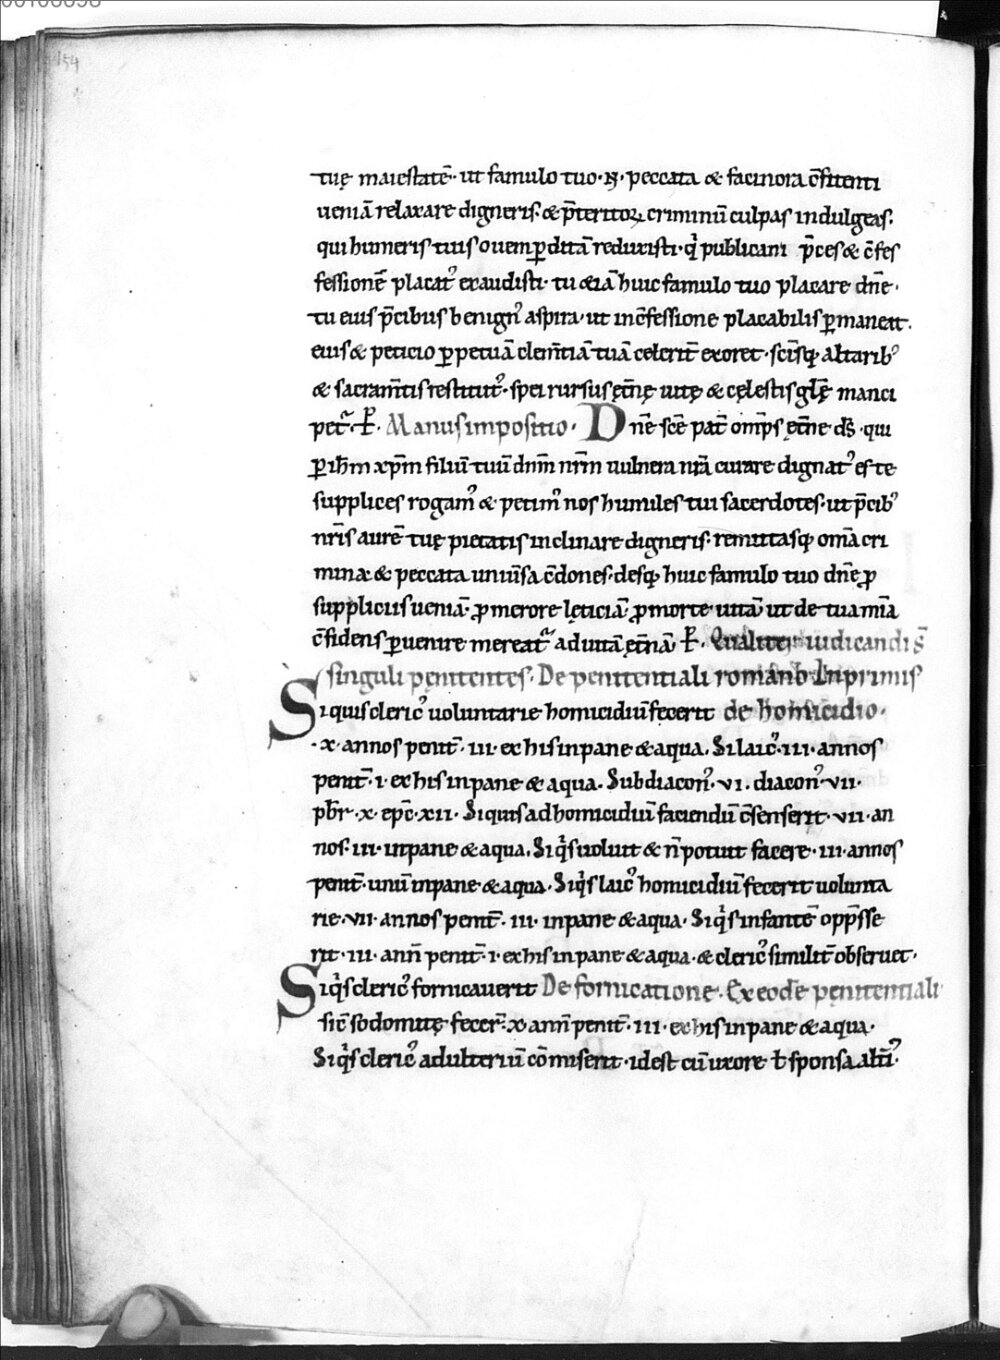 154
tuę maiestatē· ut famulo tuo·N̄· peccata & facinora c̄fitenti
ueniā relaxare digneris· & p̄teritoꝝ criminū culpas indulgeas·
qui humeris tuis ouem ꝑditā reduxisti· q̇ publicani p̄ces & c̄fes
fessionē placatꝰ exaudisti· tu &iā huic famulo tuo placare dn̄e·
tu eius p̄cibus benignꝰ aspira· ut in c̄fessione placabilis ꝑmaneat·
eius & peticio ꝑpetuā clem̄tiā tuā celerit̄ exoret· sc̄isq; altaribꝰ
& sacram̄tis restitutꝰ· spei rursus ęt̄nę uitę & cęlestis gl̄ę manci
pet᷑· P̄· Manus impositio· Dn̄e sc̄e pat̄ om̄ps ęt̄ne ds̄· qui
ꝑ ih̄m xp̄m filiū tuū dn̄m nr̄m uulnera nr̄a curare dignatꝰ es te
supplices rogamꝰ & petimꝰ nos humiles tui sacerdotes· ut p̄cibꝰ
nr̄is aurē tuę pietatis inclinare digneris· remittasq; om̄a cri
mina & peccata uniuersa c̄dones· desq; huic famulo tuo dn̄e ꝓ
suppliciis ueniā· ꝓ merore lęticiā· ꝓ morte uitā ut de tua mīa
c̄fidens ꝑuenire mereat᷑ ad uitā ęt̄nā P̄· Qualiter iudicandi s̄
singuli pęnitentes· De penitentiali romano Inprimis
Si quis clericꝰ uoluntarie homicidiū fecerit de homicidio·
·x· annos penit̄· iii· ex his in pane & aqua· Si laicꝰ·iii· annos
penit̄· i· ex his in pane & aqua· Subdiaconꝰ·vi· diaconꝰ·vii·
pb̄r·x· ep̄c·xii· Siquis ad homicidiū faciendū c̄senserit·vii·an
nos·iii· in pane & aqua· Siq̇s uoluit & n̄ potuit facere·iii· annos
penit̄· unū in pane & aqua· Siq̇s laicꝰ homicidiū fecerit uolunta
rie·vii· annos penit̄· iii· in pane & aqua· Siq̇s infantē opp̄sse
rit·iii· ann̄ penit̄·i· ex his in pane & aqua· & clericꝰ similit̄ obseruet·
Siq̇s clericꝰ fornicauerit De fornicatione· Ex eodē pęnitentiali
sic̄ sodomitę fecer̄·x· ann̄ penit̄·iii· ex his in pane & aqua·
Siq̇s clericꝰ adulteriū cōmiserit· idest cū uxore ł sponsa altiꝰ·